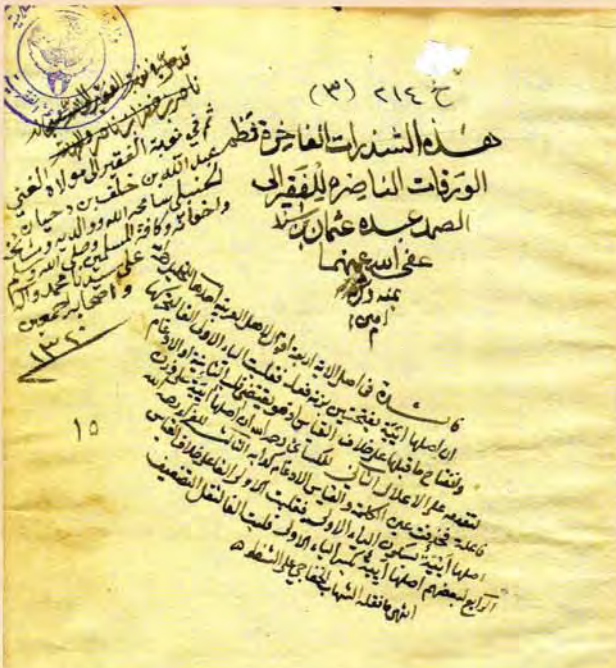 خ ٢١٤ (٣)
هذه الشذرات الفاخرة نظم
الورقات الناضره للفقير الى
الصمد عبده عثمان بن سند
عفى الله عنهما
بمنه وكرمه
امين
ثم في نوبة الفقير الى مولاه الغني
عبد الله بن خلف بن دحيان
الحنبلي سامحه الله ووالديه ومشايخه
واخوانه وكافة المسلمين وصلى الله وسلم
على سيدنا محمد وآله
واصحابه اجمعين
١٣٢٠
١٥
فائدة في اصل الاية اربعة اقوال لاهل العربية احدها للخليل
ان اصلها أيَيَة بفتحتين بزنة فعلة فقلبت الياء الاولى الفا لتحركها
وانفتاح ما قبلها على خلاف القياس اذ هو يقتضي قلب الثانية او الادغام
لتقدمه على الاعلال الثاني للكسائي رحمه الله ان اصلها آيية على وزن
فاعلة فحذفت عين الكلمة والقياس الادغام كدابة الثالث للفراء رحمه الله
اصلها أيية بسكون الياء الاولى فقلبت الاولى الفا على خلاف القياس
الرابع لبعضهم اصلها أيية بكسر الياء الاولى قلبت الفا لثقل التضعيف
انتهى ما نقله الشهاب الخفاجي على الشفا